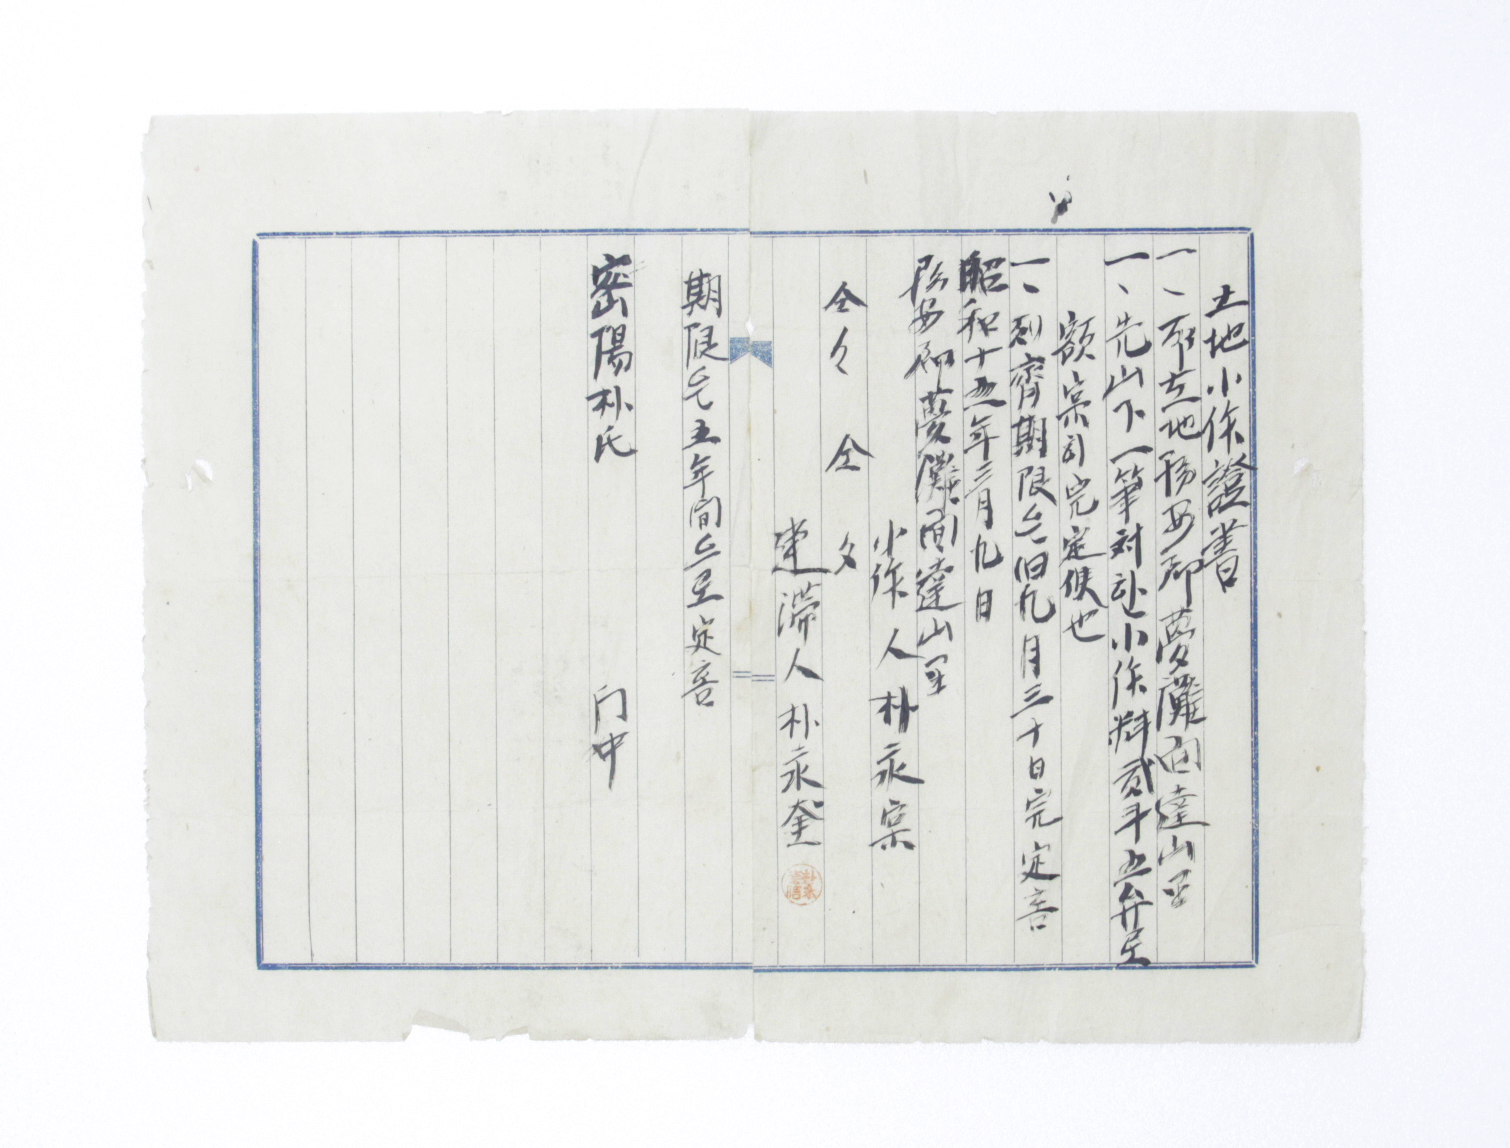 土地小作證書
一、所在地務安郡夢灘面達山里
一、先山下一筆対 小作料貳斗五升로
額 完定候也
一、 期限은旧九月三十日完定홈
昭和十五年三月九日
務安郡夢灘面達山里
小作人 朴永
仝々 仝 々
連滞人 朴永奎
期限은五年間으로定홈
密陽朴氏 门中